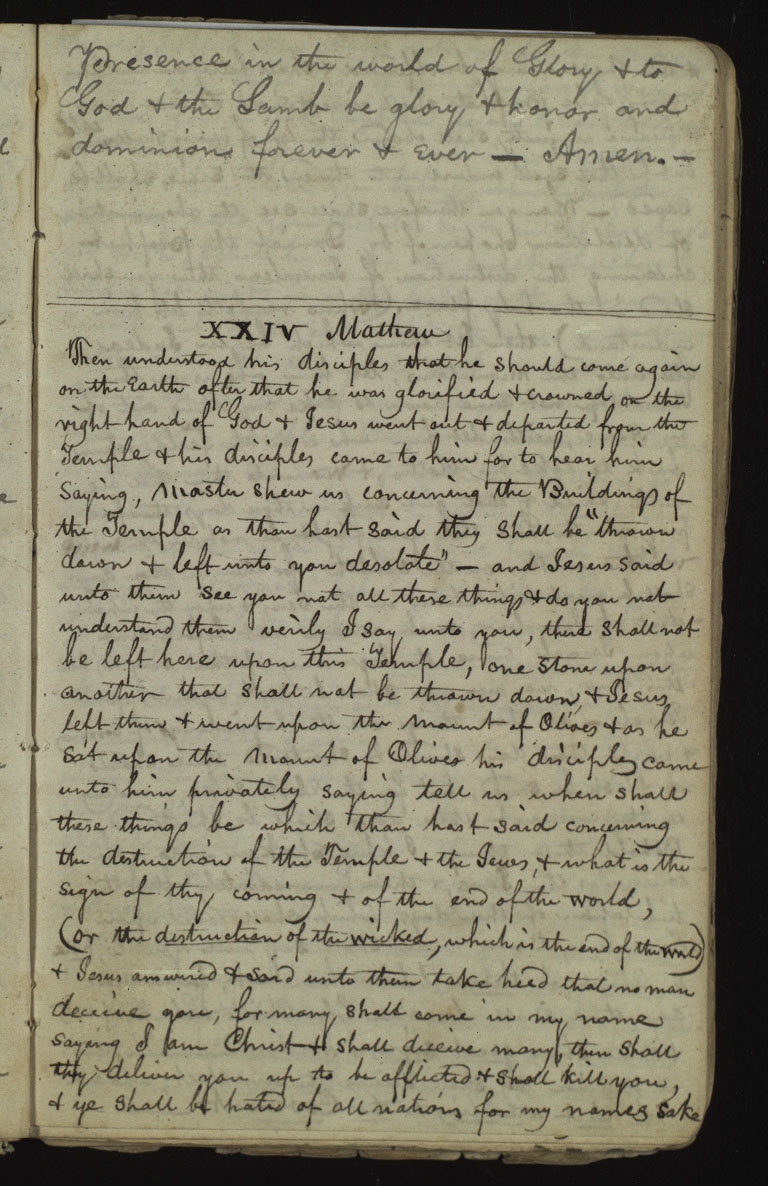 presence in the world of Glory & to
God & the Lamb be glory & honor and
dominion forever & ever — Amen. —
XXIV Mathew
Then understood his disciples that he should come again
on the Earth after that he was glorified & crowned on the
right hand of God & Jesus went out & departed from the
Temple & his disciples came to him for to hear him
Saying, Master shew us concerning the Buildings of
the Temple as thou hast said they shall be "thrown
down & left unto you desolate" — and Jesus said
unto them see you not all these things & do you not
understand them verily I say unto you, there shall not
be left here upon this Temple, one stone upon
another that shall not be thrown down, & Jesus
left them & went upon the Mount of Olives & as he
sat upon the Mount of Olives his disciples came
unto him privately saying tell us when shall
these things be which thou hast said concerning
the destruction of the Temple & the Jews, & what is the
sign of thy coming & of the end of the world,
(or the destruction of the wicked, which is the end of the world)
& Jesus answered & said unto them take heed that no man
deceive you, for many shall come in my name
saying I am Christ & shall deceive many, then shall
they deliver you up to be afflicted & shall kill you,
& ye shall be hated of all nations for my names sake